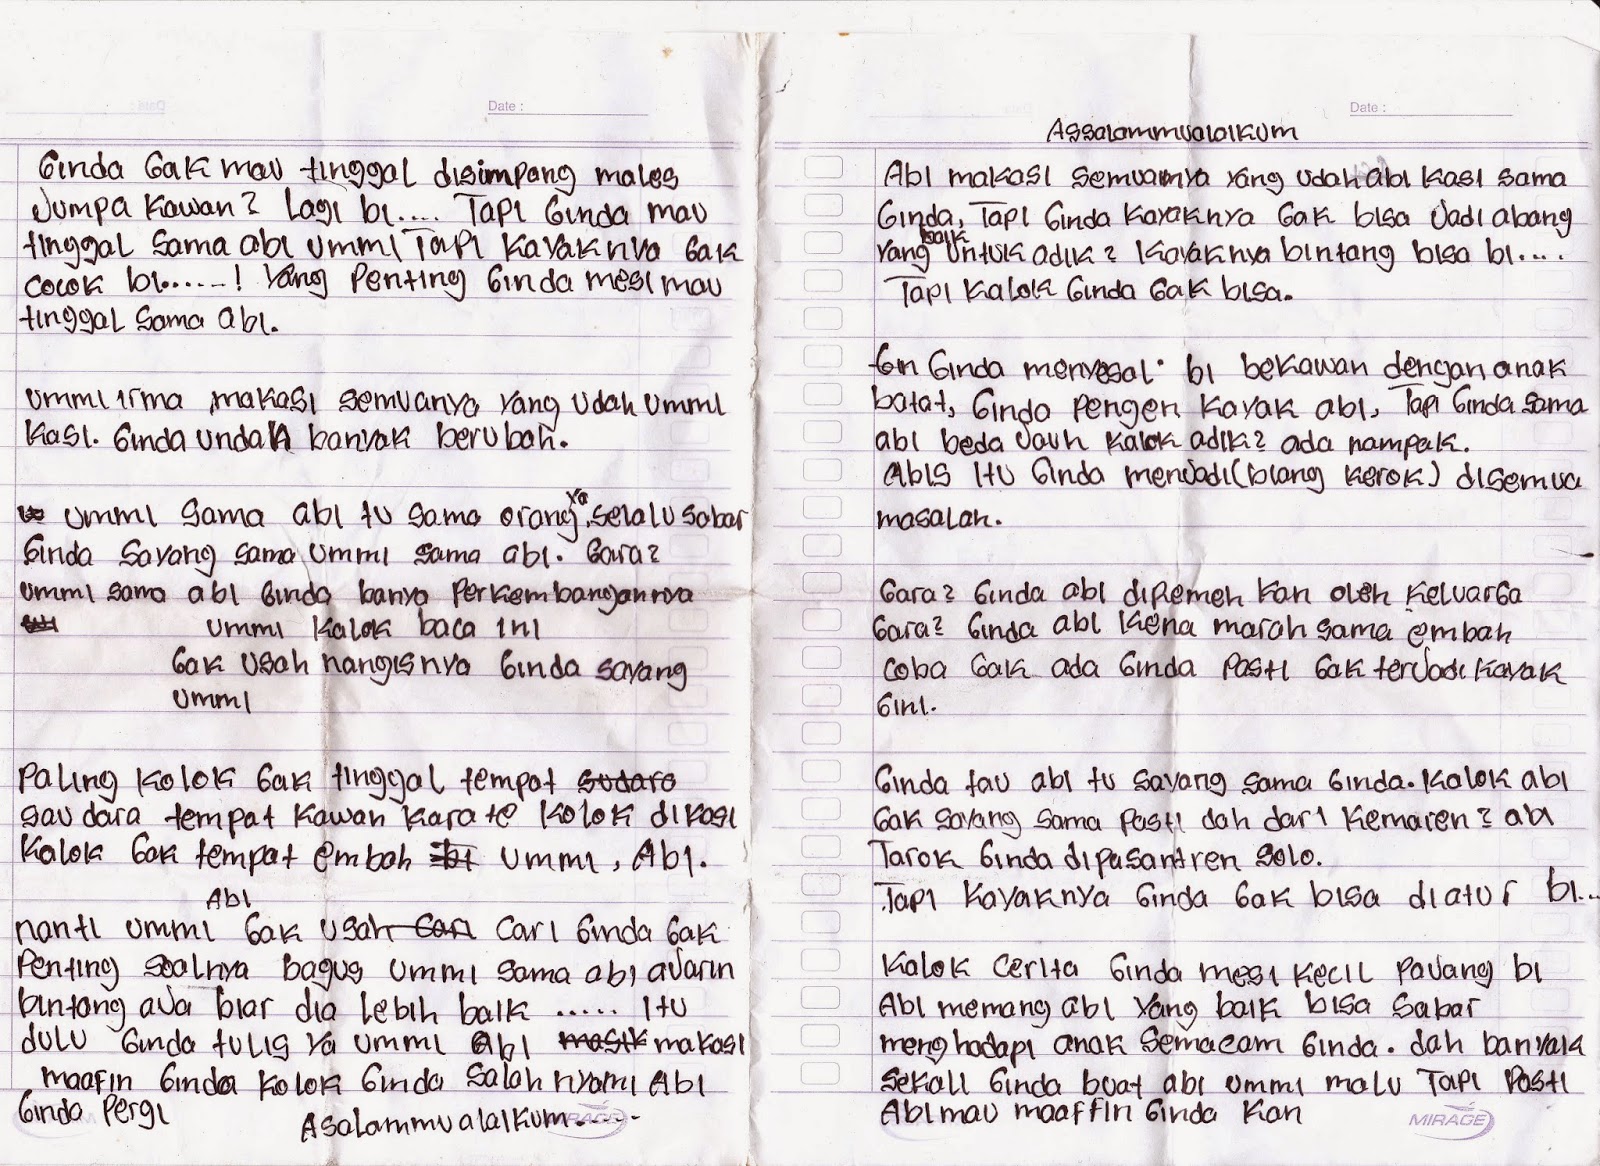 Date :
Assalammualaikum
Abi makasi semuanya yang udah abi kasi sama
Ginda, Tapi Ginda kayaknya Gak bisa Jadi abang
yang baik untuk adik2 kayaknya bintang bisa bi....
Tapi kalok Ginda Gak bisa.
Gin Ginda menyesal bi bekawan dengan anak
batat, Ginda pengen kayak abi, Tapi Ginda sama
abi beda Jauh kalok adik2 ada nampak.
Abis itu Ginda menjadi (biang kerok) disemua
masalah.
Gara2 Ginda abi diremeh kan oleh keluarga
Gara2 Ginda abi kena marah sama embah
coba Gak ada Ginda Pasti Gak terJadi kayak
Gini.
Ginda tau abi tu sayang sama Ginda. kalok abi
Gak sayang sama pasti dah dari kemaren2 abi
Tarok Ginda dipasantren solo.
Tapi kayaknya Ginda Gak bisa diatur bi...
kalok cerita Ginda mesi kecil paJang bi
Abi memang abi yang baik bisa sabar
menghadapi anak semacam Ginda. dah banyak
sekali Ginda buat abi ummi malu Tapi Pasti
Abi mau maaffin Ginda kan
MIRAGE
Date :
Ginda Gak mau tinggal disimpang males
Jumpa kawan2 Lagi bi.... Tapi Ginda mau
tinggal sama abi ummi Tapi kayaknya Gak
cocok bi......! Yang Penting Ginda mesi mau
tinggal sama abi.
ummi irma, makasi semuanya yang udah ummi
kasi. Ginda undah banyak berubah.
ummi sama abi tu sama orang ya, selalu sabar
Ginda sayang sama ummi sama abi. Gara2
ummi sama abi Ginda banya perkembangannya
ummi kalok baca ini
Gak usah nangisnya Ginda sayang
ummi
Paling kolok Gak tinggal tempat sudara
saudara tempat kawan karate kolok dikasi
kalok Gak tempat embah bi ummi, Abi.
nanti ummi Abi Gak usah cari cari Ginda Gak
Penting soalnya bagus ummi sama abi aJarin
bintang aJa biar dia lebih baik ..... Itu
dulu Ginda tulis ya ummi Abi masik makasi
maafin Ginda kolok Ginda salahnyami Abi
Ginda Pergi
Asalammualaikum......
MIRAGE